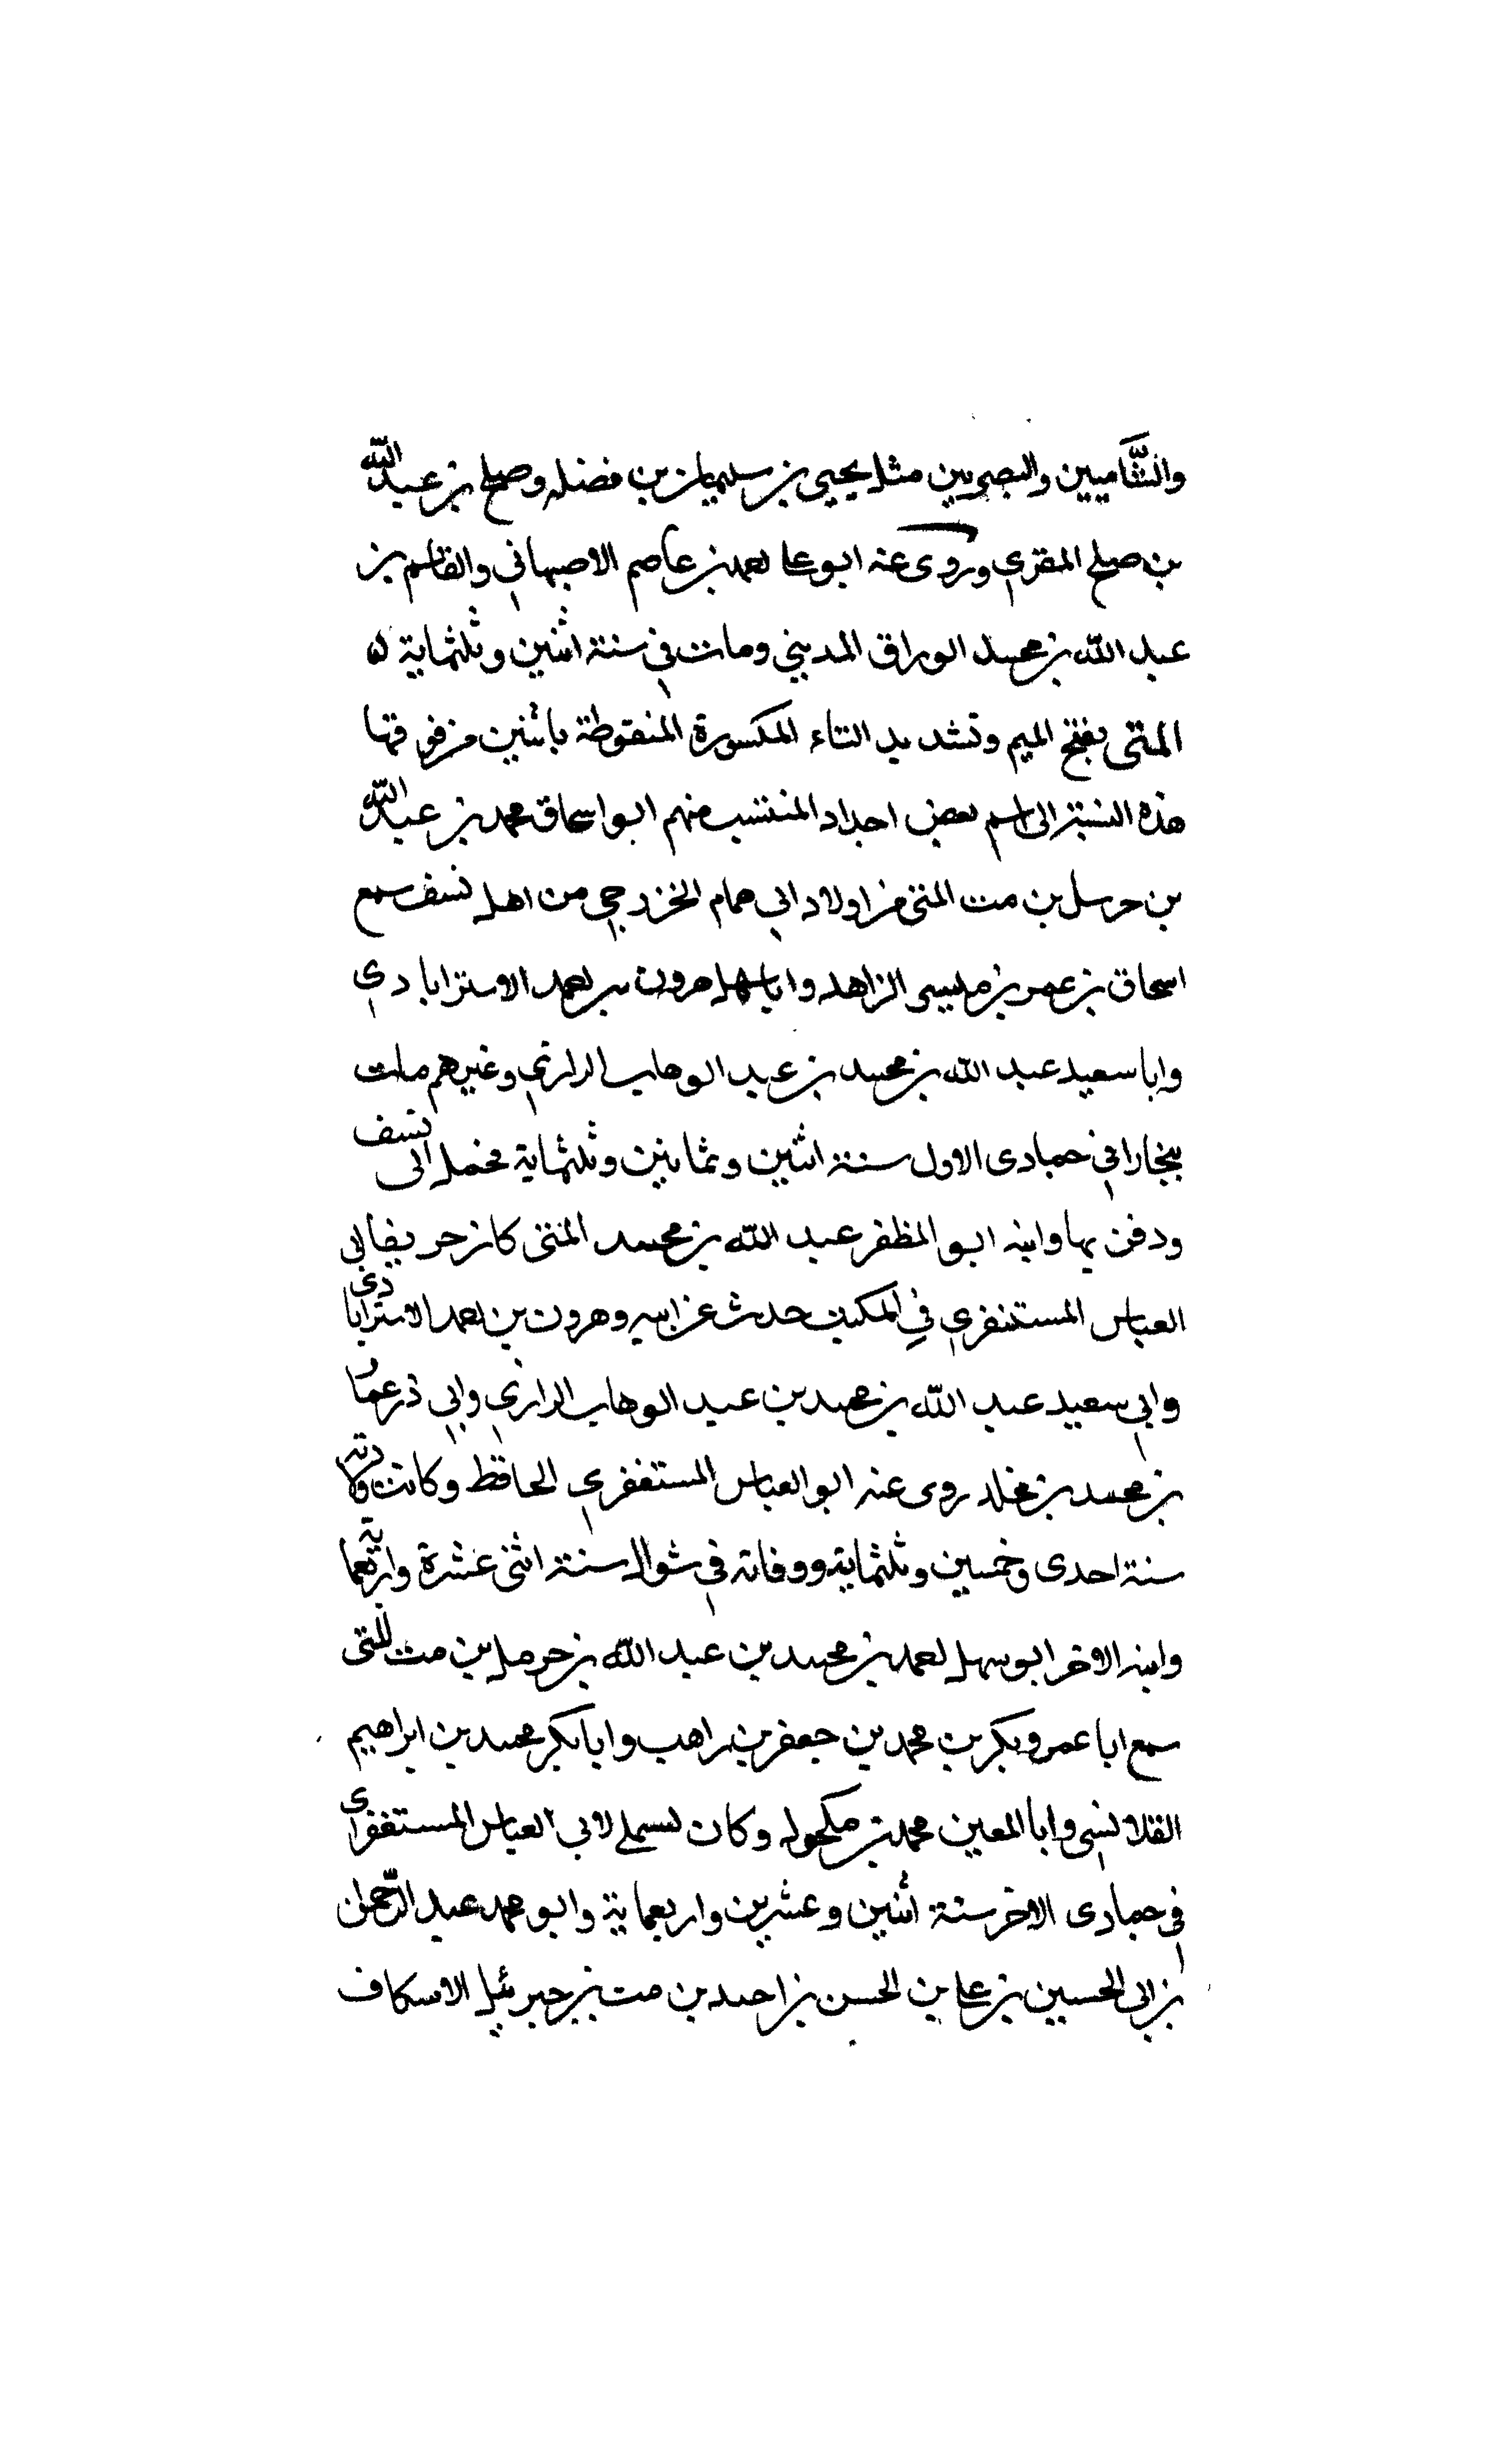 والشَّاميين والبصريين مثل يحيى بن سليمان بن فضلة وصلح بن عبد الله
بن صلح المقري وروى عنه ابو على احمد بن عاصم الاصبهاني والقاسم بن
عبد الله بن محمد الوراق المديني ومات في سنة اثنين وثلثماية ه
المتى بفتح الميم وتشديد التاء المكسورة المنقوطة باثنين من فوقها
هذه النسبة الى اسم بعض اجداد المنتسب منهم ابو اسحاق محمد بن عبد الله
بن مت المتى من اولاد ابي همام الخزرجي من اهل نسف سمع
اسحاق بن عمر بن الزاهد وابا سهل هرون بن احمد الاسترابادي
وابا سعيد عبد الله بن محمد بن عبد الوهاب الرازي وغيرهم مات
ببخارا في جمادى الاول سنة اثنين وثمانين وثلثماية فحمل الى نسف
ودفن بها وابنه ابو المظفر عبد الله بن محمد المتى كان ابي
العباس المستغفري في المكتب حدث عن ابيه وهرون بن احمد الاسترابادي
وابي سعيد عبد الله بن محمد بن عبد الوهاب الرازي وابي ذر عمار
بن محمد بن مخلد روى عنه ابو العباس المستغفري الحافظ وكانت ولادته
سنة احدى وخمسين وثلثماية ووفاته في شوال سنة اثنى عشرة واربعماية
وابنه الاخر ابو سهل احمد بن محمد بن عبد الله بن بن مت المتى
سمع ابا عمرو بكر بن محمد بن جعفر بن راهب وابا بكر محمد بن ابراهيم
القلانسي وابا المعين محمد بن مكحول وكان يستملي لابي العباس المستغفرى
في جمادى الاخر سنة اثنين وعشرين واربعماية وابو محمد عبد الرحمان
بن ابى الحسين بن على بن الحسن بن احمد بن مت بن جبرئيل الاسكاف